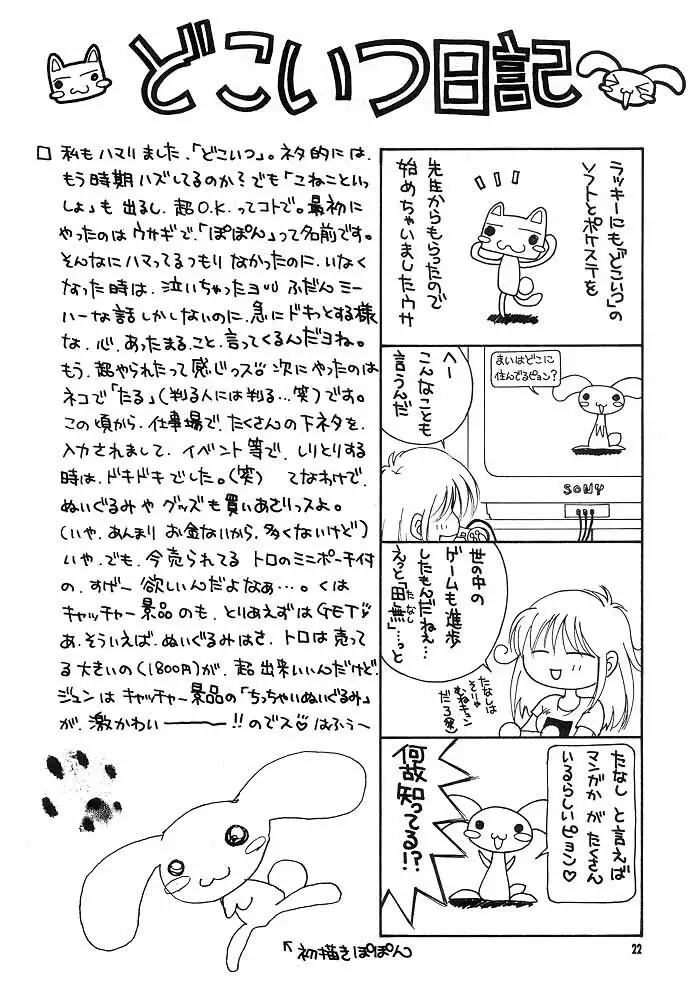 どこいつ日記
□ 私もハマりました、「どこいつ」。ネタ的には、
もう時期ハズしてるのか？でも「こねこといっ
しょ」も出るし、超O.K.ってコトで。最初に
やったのはウサギで、「ぽぽん」って名前です。
そんなにハマってるつもりなかったのに、いなく
なった時は、泣いちゃったヨ ふだんミー
ハーな話しかしないのに、急にドキっとする様
な、心、あったまること、言ってくるんだヨね。
もう、超やられたって感じっス 次にやったのは
ネコで「たる」（判る人には判る…笑）です。
この頃から、仕事場で、たくさんの下ネタを、
入力されまして、イベント等で、しりとりする
時は、ドキドキでした。（笑） てなわけで、
ぬいぐるみやグッズも買いあさりっスよ。
（いや、あんまりお金ないから、多くないけど）
いや、でも、今売られてるトロのミニポーチ付
の、すげー欲しいんだよなあ…。くは
キャッチャー景品のも、とりあえずはGET♡
あ、そういえば、ぬいぐるみはさ、トロは売って
る大きいの（1800円）が、超出来いいんだけど、
ジュンはキャッチャー景品の「ちっちゃいぬいぐるみ」
が、激かわいーーー!!のでス♡はふぅ〜
↖初描きぽぽん
ラッキーにも「どこいつ」の
ソフトとポケステを
先生からもらったので
始めちゃいましたウサ
まいはどこに
住んでるピョン？
へー
こんなことも
言うんだ
SONY
世の中の
ゲームも進歩
したもんだねえ…
えっと「田無」…っと
たなし
たなしは
そりゃ
むねキュン
だろ(笑)
たなし と言えば
マンガか が たくさん
いるらしいピョン♡
何故知ってる!?
22